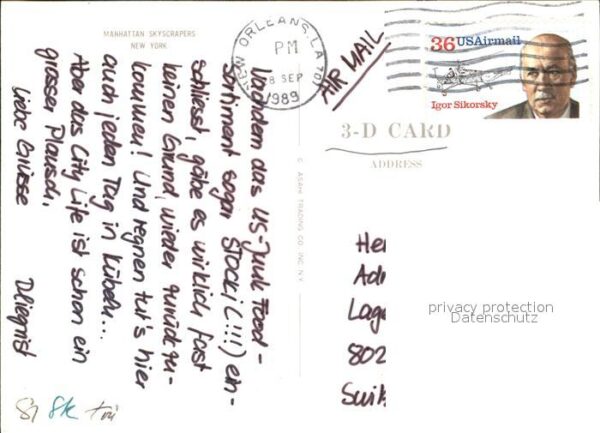 MANHATTAN SKYSCRAPERS
NEW YORK
Nachdem das US-Junk Food-
Sortiment sogar STOCKI (!!!) ein-
schliesst, gäbe es wirklich fast
keinen Grund, wieder zurück zu-
kommen! Und regnen tut's hier
auch jeden Tag in Kübeln...
Aber das City Life ist schon ein
grosser Plausch.
Liebe Grüsse
© ASAHI TRADING CO. INC. N.Y.
NEW ORLEANS, LA 701
PM
8 SEP
1989
AIR MAIL
36 USAirmail
Igor Sikorsky
3-D CARD
ADDRESS
He
Ad
Lage
802
Suik
privacy protection
Datenschutz